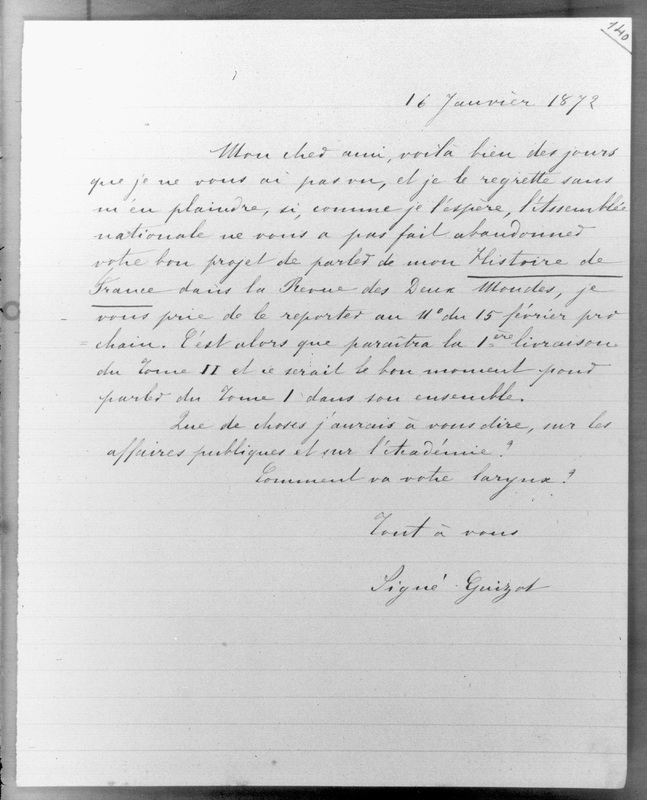 140
16 Janvier 1872
Mon cher ami, voilà bien des jours
que je ne vous ai pas vu, et je le regrette sans
m'en plaindre, si, comme je l'espère, l'Assemblée
nationale ne vous a pas fait abandonner
votre bon projet de parler de mon Histoire de
France dans la Revue des Deux Mondes, je
vous prie de le reporter au No du 15 février pro
=chain. C'est alors que paraîtra la 1ère livraison
du Tome II et ce serait le bon moment pour
parler du Tome I dans son ensemble.
Que de choses j'aurais à vous dire, sur les
affaires publiques et sur l'Académie?
Comment va votre larynx?
Tout à vous
Signé Guizot